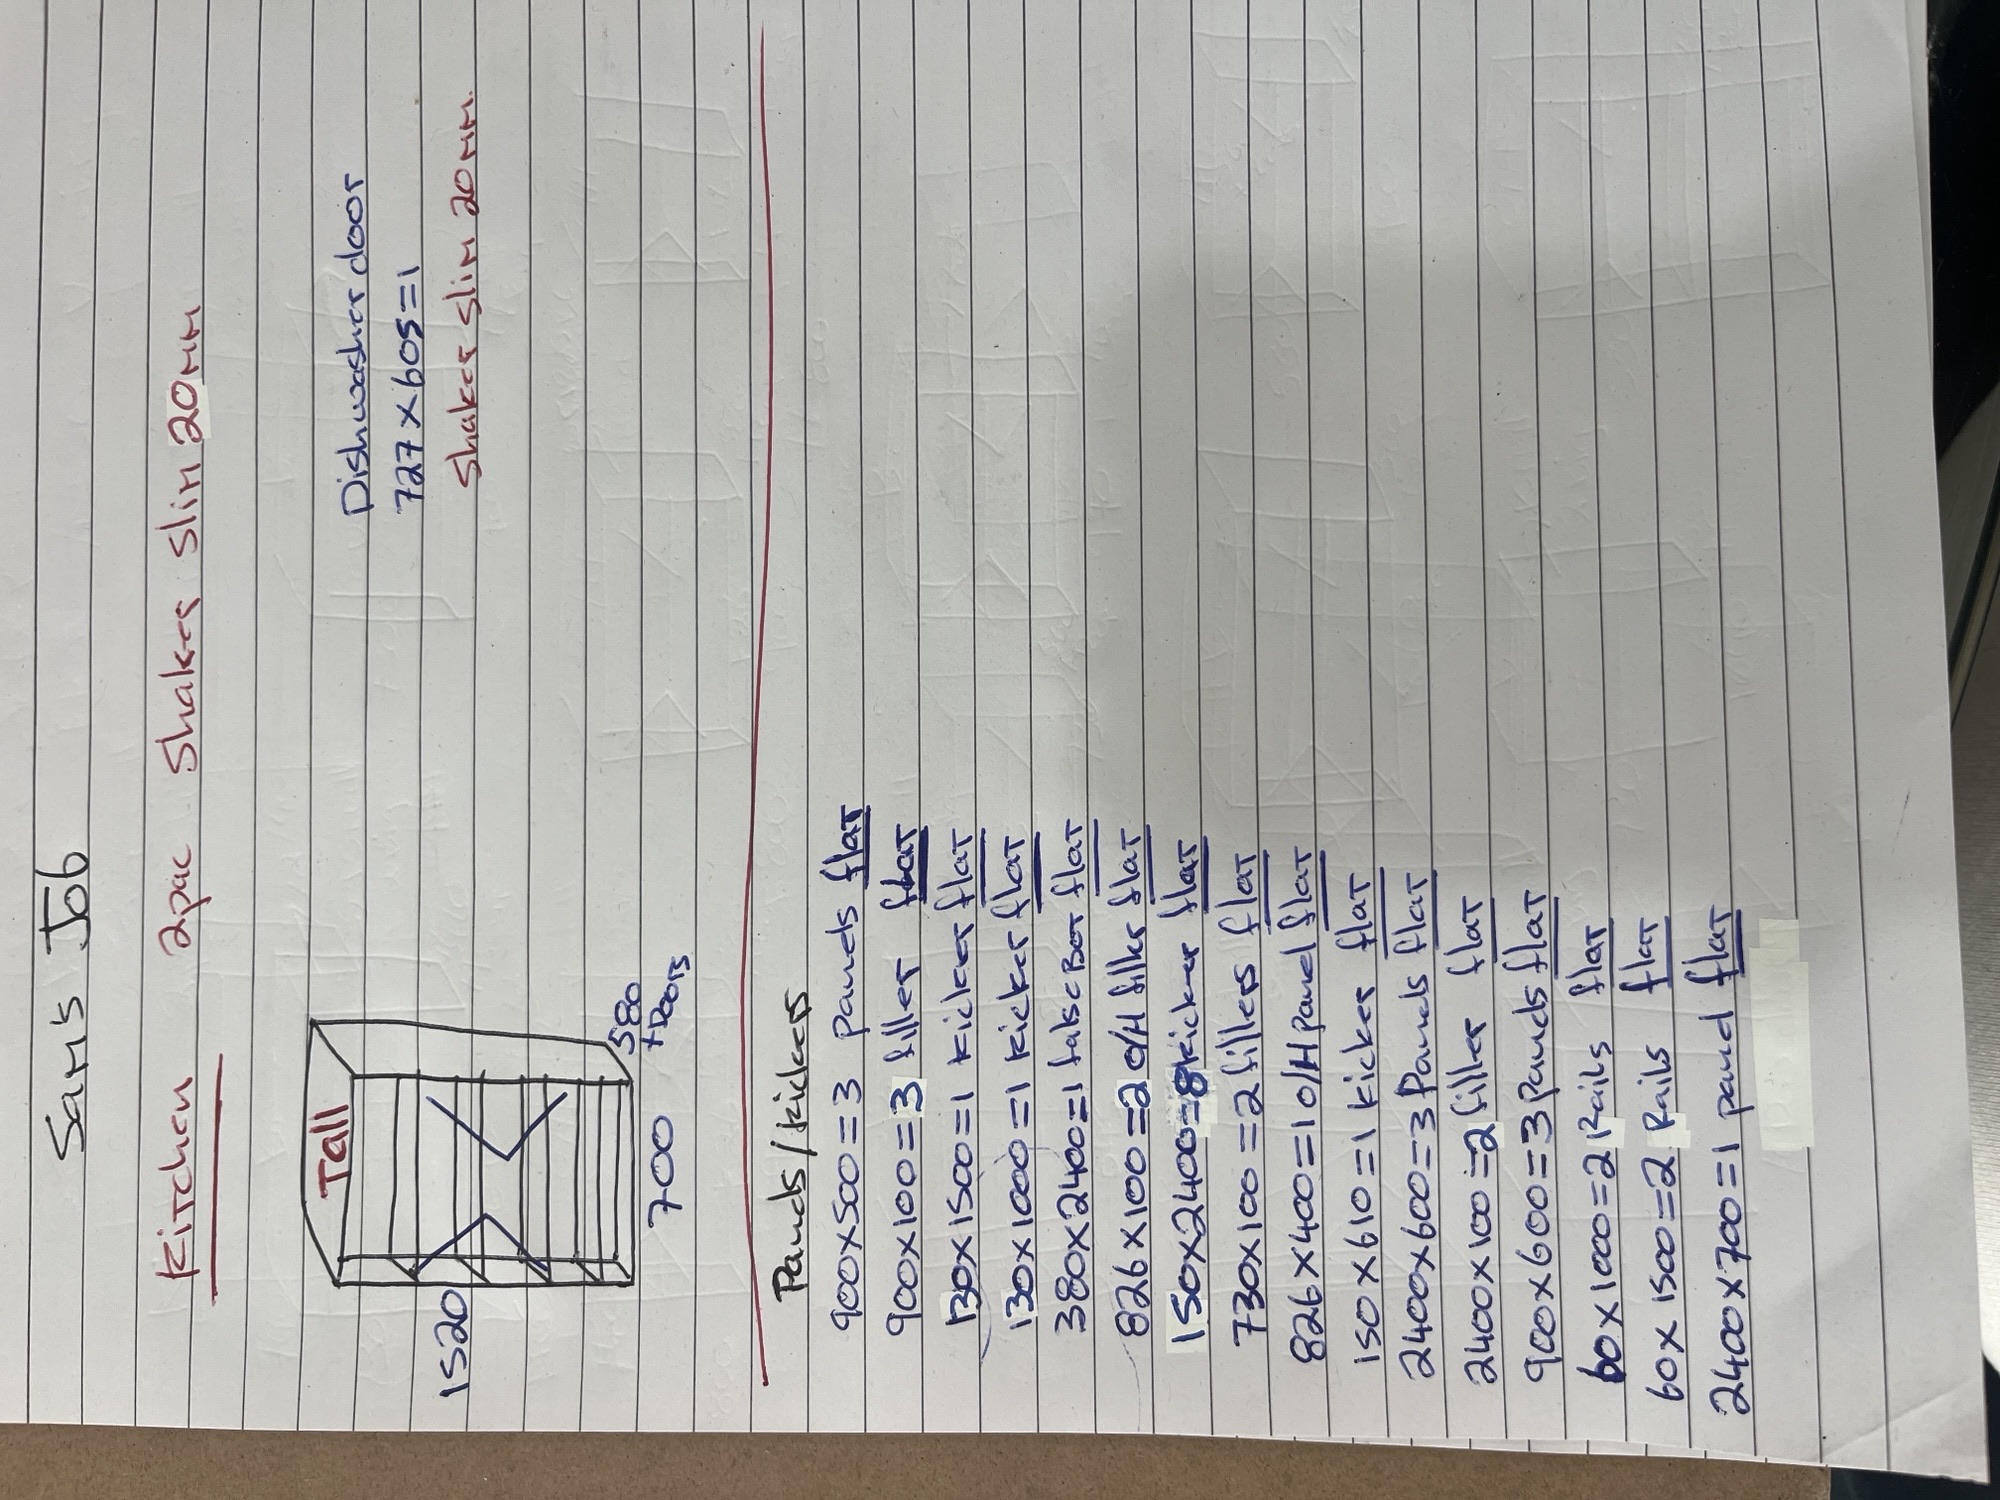 Sam's Job
Kitchen 2pac Shaker Slim 20mm
Tall
1520
700
580
+Doors
Dishwasher door
727 x 605 = 1
Shaker Slim 20mm
Panels / kickers
900 x 500 = 3 panels flat
900 x 100 = 3 filler flat
130 x 1500 = 1 kicker flat
130 x 1000 = 1 kicker flat
380 x 2400 = 1 false Bot flat
826 x 100 = 2 O/H filler flat
150 x 2400 = 8 kicker flat
730 x 100 = 2 fillers flat
826 x 400 = 1 O/H panel flat
150 x 610 = 1 kicker flat
2400 x 600 = 3 Panels flat
2400 x 100 = 2 filler flat
900 x 600 = 3 Panels flat
60 x 1000 = 2 Rails flat
60 x 1500 = 2 Rails flat
2400 x 700 = 1 panel flat